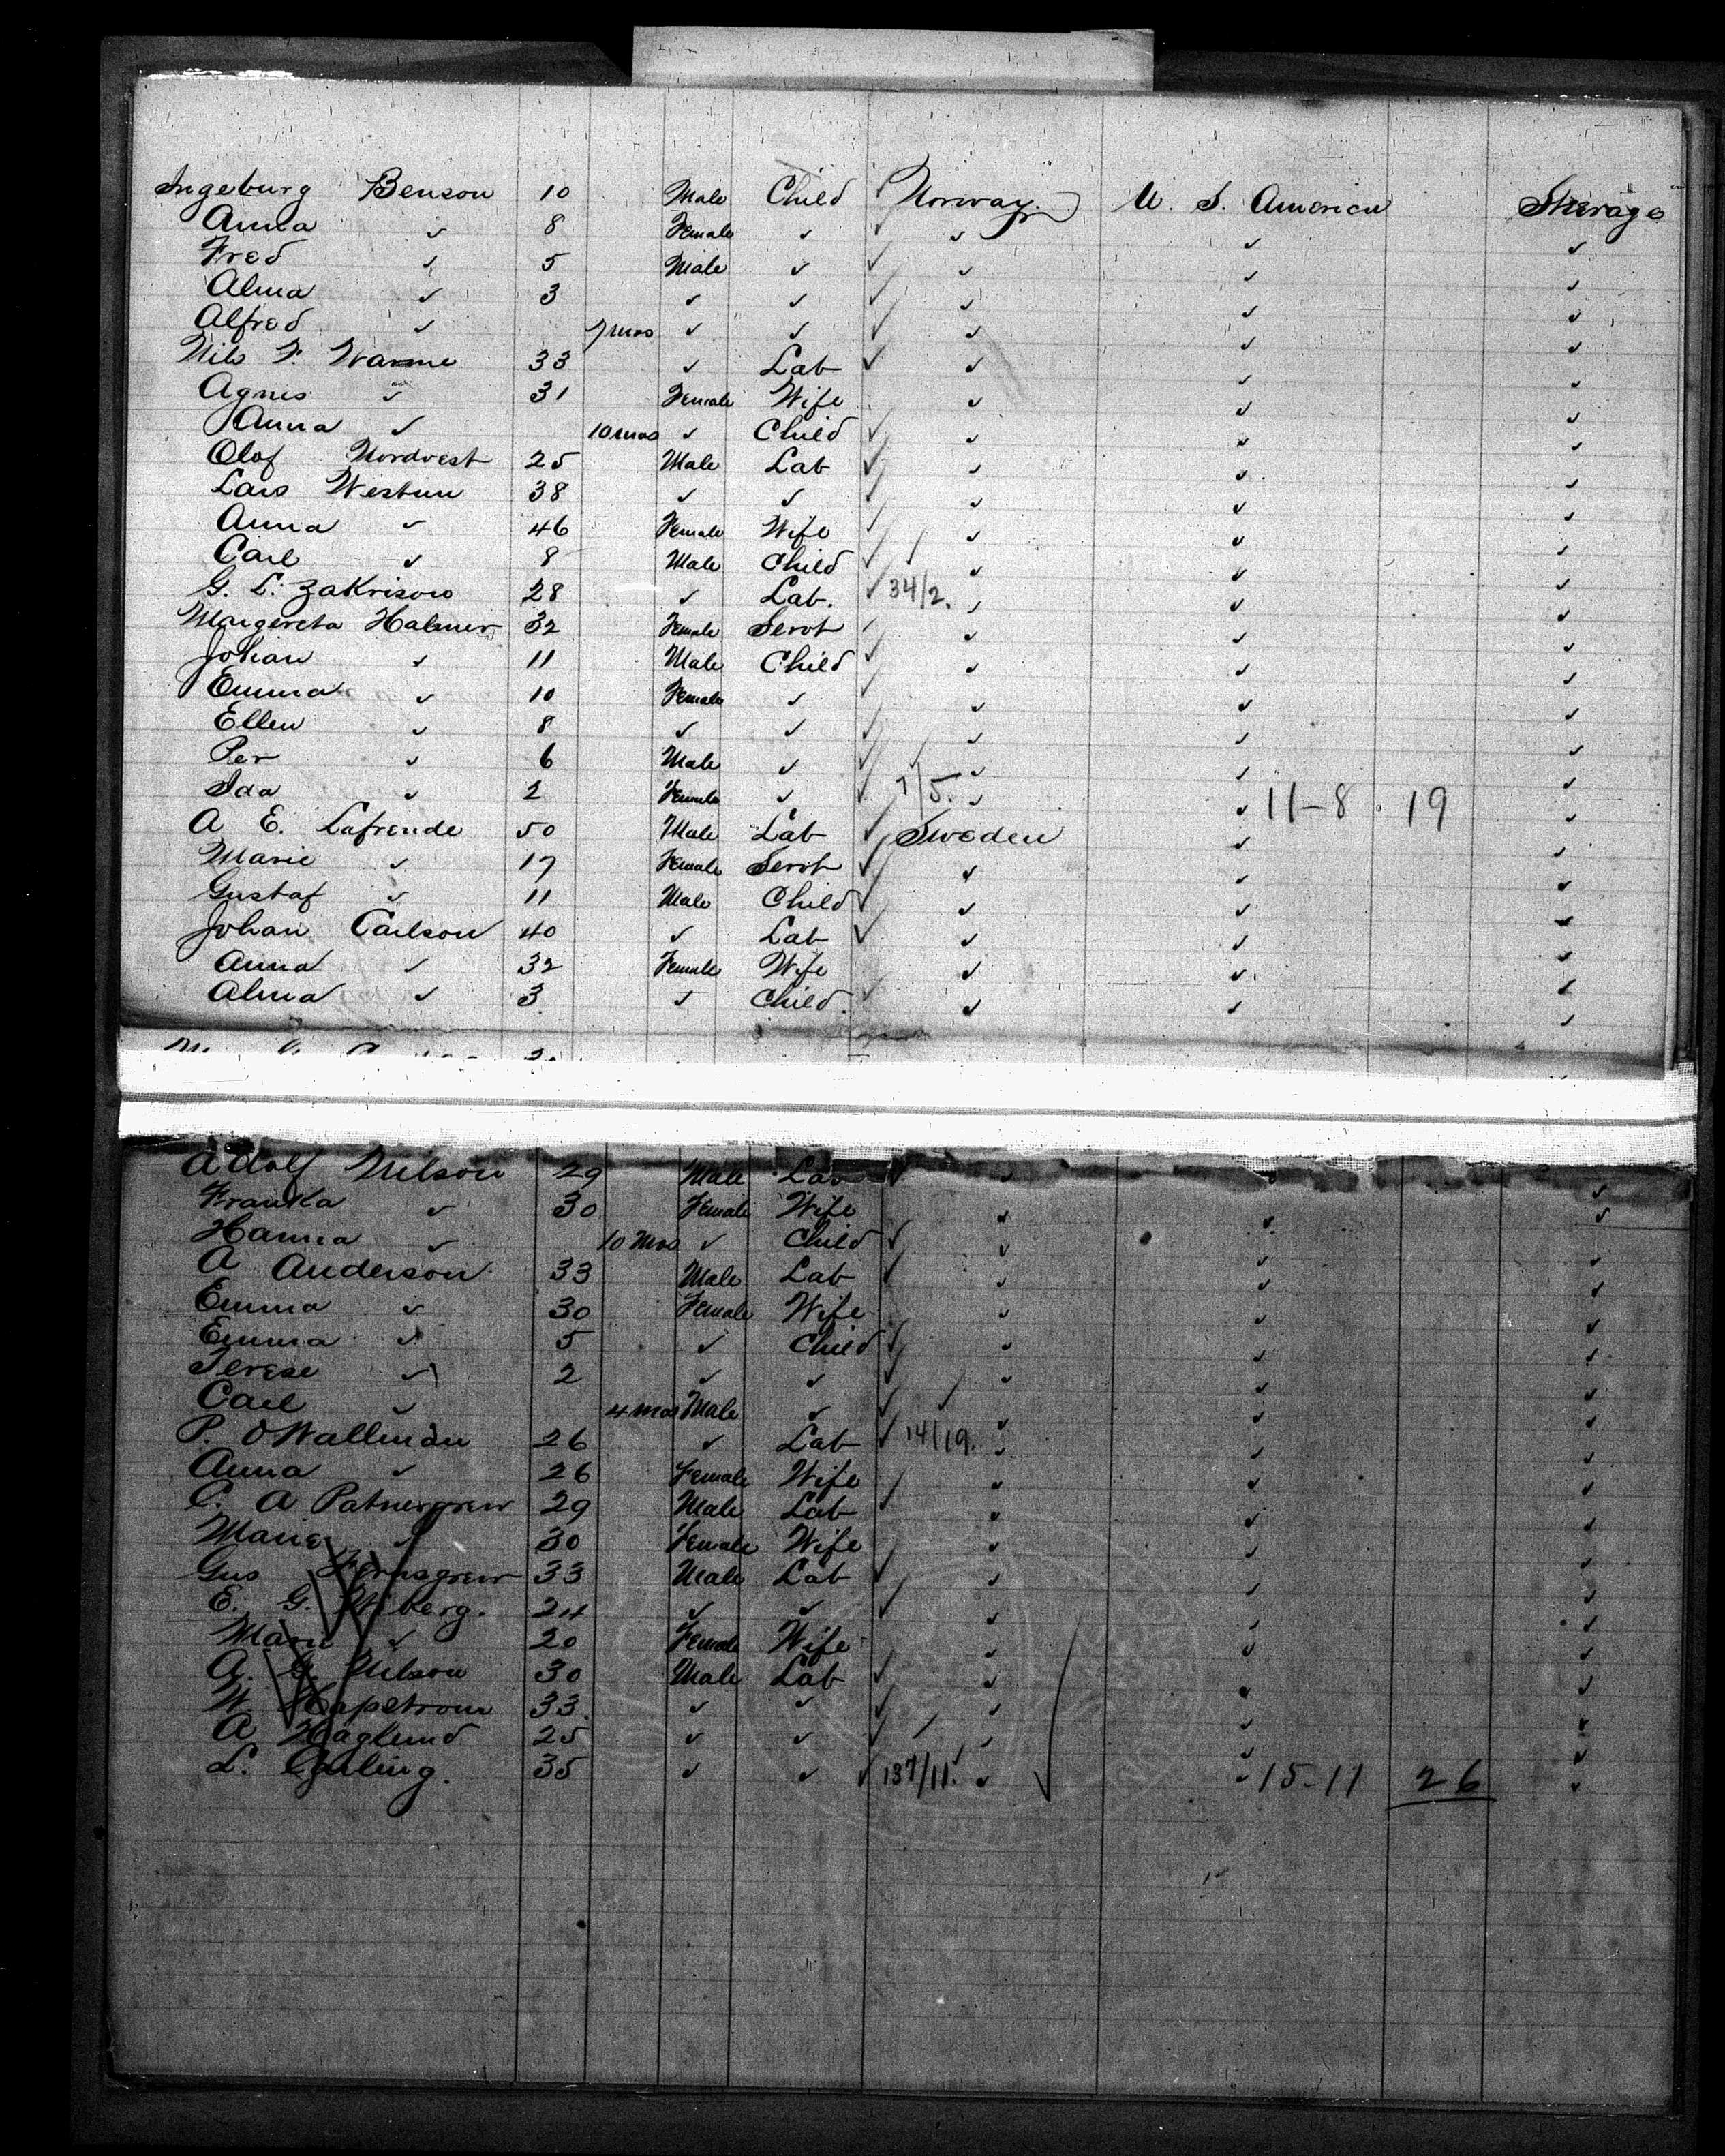 Ingeburg Benson 10 Male Child ✓ Norway U. S. America Sterage
Anna ✓ 8 Female ✓ ✓ ✓ ✓ ✓
Fred ✓ 5 Male ✓ ✓ ✓ ✓ ✓
Alma ✓ 3 ✓ ✓ ✓ ✓ ✓ ✓
Alfred ✓ 7 mos ✓ ✓ ✓ ✓ ✓ ✓
Nils F. Warme 33 ✓ Lab ✓ ✓ ✓ ✓
Agnes ✓ 31 Female Wife ✓ ✓ ✓
Anna ✓ 10 mos ✓ Child ✓ ✓ ✓ ✓
Olof Nordvest 25 Male Lab ✓ ✓ ✓ ✓
Lars 38 ✓ ✓ ✓ ✓ ✓ ✓
Anna ✓ 46 Female Wife ✓ ✓ ✓ ✓
Carl ✓ 8 Male Child ✓ ✓ ✓ ✓
G. L. Zakrison 28 ✓ Lab. ✓ 34/2. ✓ ✓ ✓
Margereta Halmer 32 Female Servt ✓ ✓ ✓ ✓
Johan ✓ 11 Male Child ✓ ✓ ✓ ✓
Emma ✓ 10 Female ✓ ✓ ✓ ✓ ✓
Ellen ✓ 8 ✓ ✓ ✓ ✓ ✓ ✓
Per ✓ 6 Male ✓ ✓ ✓ ✓ ✓
Ida ✓ 2 Female ✓ ✓ 7/5. ✓ ✓ 11-8 19 ✓
A E. Lafrende 50 Male Lab ✓ Sweden ✓ ✓
Marie ✓ 17 Female Servt ✓ ✓ ✓ ✓
Gustaf ✓ 11 Male Child ✓ ✓ ✓ ✓
Johan Carlson 40 ✓ Lab ✓ ✓ ✓ ✓
Anna ✓ 32 Female Wife ✓ ✓ ✓
Alma ✓ 3 ✓ Child ✓ ✓ ✓ ✓
Adolf Nilson 29 Male Lab ✓ ✓ ✓ ✓
Franka ✓ 30 Female Wife ✓ ✓ ✓
Hanna ✓ 10 Mos ✓ Child ✓ ✓ ✓ ✓
A Anderson 33 Male Lab ✓ ✓ ✓ ✓
Emma ✓ 30 Female Wife ✓ ✓ ✓
Emma ✓ 5 ✓ Child ✓ ✓ ✓ ✓
Terese ✓ 2 ✓ ✓ ✓ ✓ ✓ ✓
Carl ✓ 4 mos Male ✓ ✓ ✓ ✓ ✓
P. O Wallman 26 ✓ Lab ✓ 14/19. ✓ ✓ ✓
Anna ✓ 26 Female Wife ✓ ✓ ✓ ✓
C. A 29 Male Lab ✓ ✓ ✓ ✓
Marie ✓ 30 Female Wife ✓ ✓ ✓
Gus 33 Male Lab ✓ ✓ ✓ ✓
E. G. 24 ✓ ✓ ✓ ✓ ✓ ✓
Marie ✓ 20 Female Wife ✓ ✓ ✓
A. Nilson 30 Male Lab ✓ ✓ ✓ ✓
33. ✓ ✓ ✓ ✓ ✓ ✓
A Haglund 25 ✓ ✓ ✓ ✓ ✓ ✓
L. Carling. 35 ✓ ✓ ✓ 137/11. ✓ ✓ 15-11 26 ✓